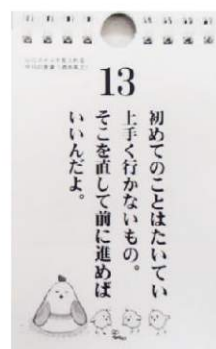 13
初めてのことはたいてい
上手く行かないもの。
そこを直して前に進めば
いいんだよ。